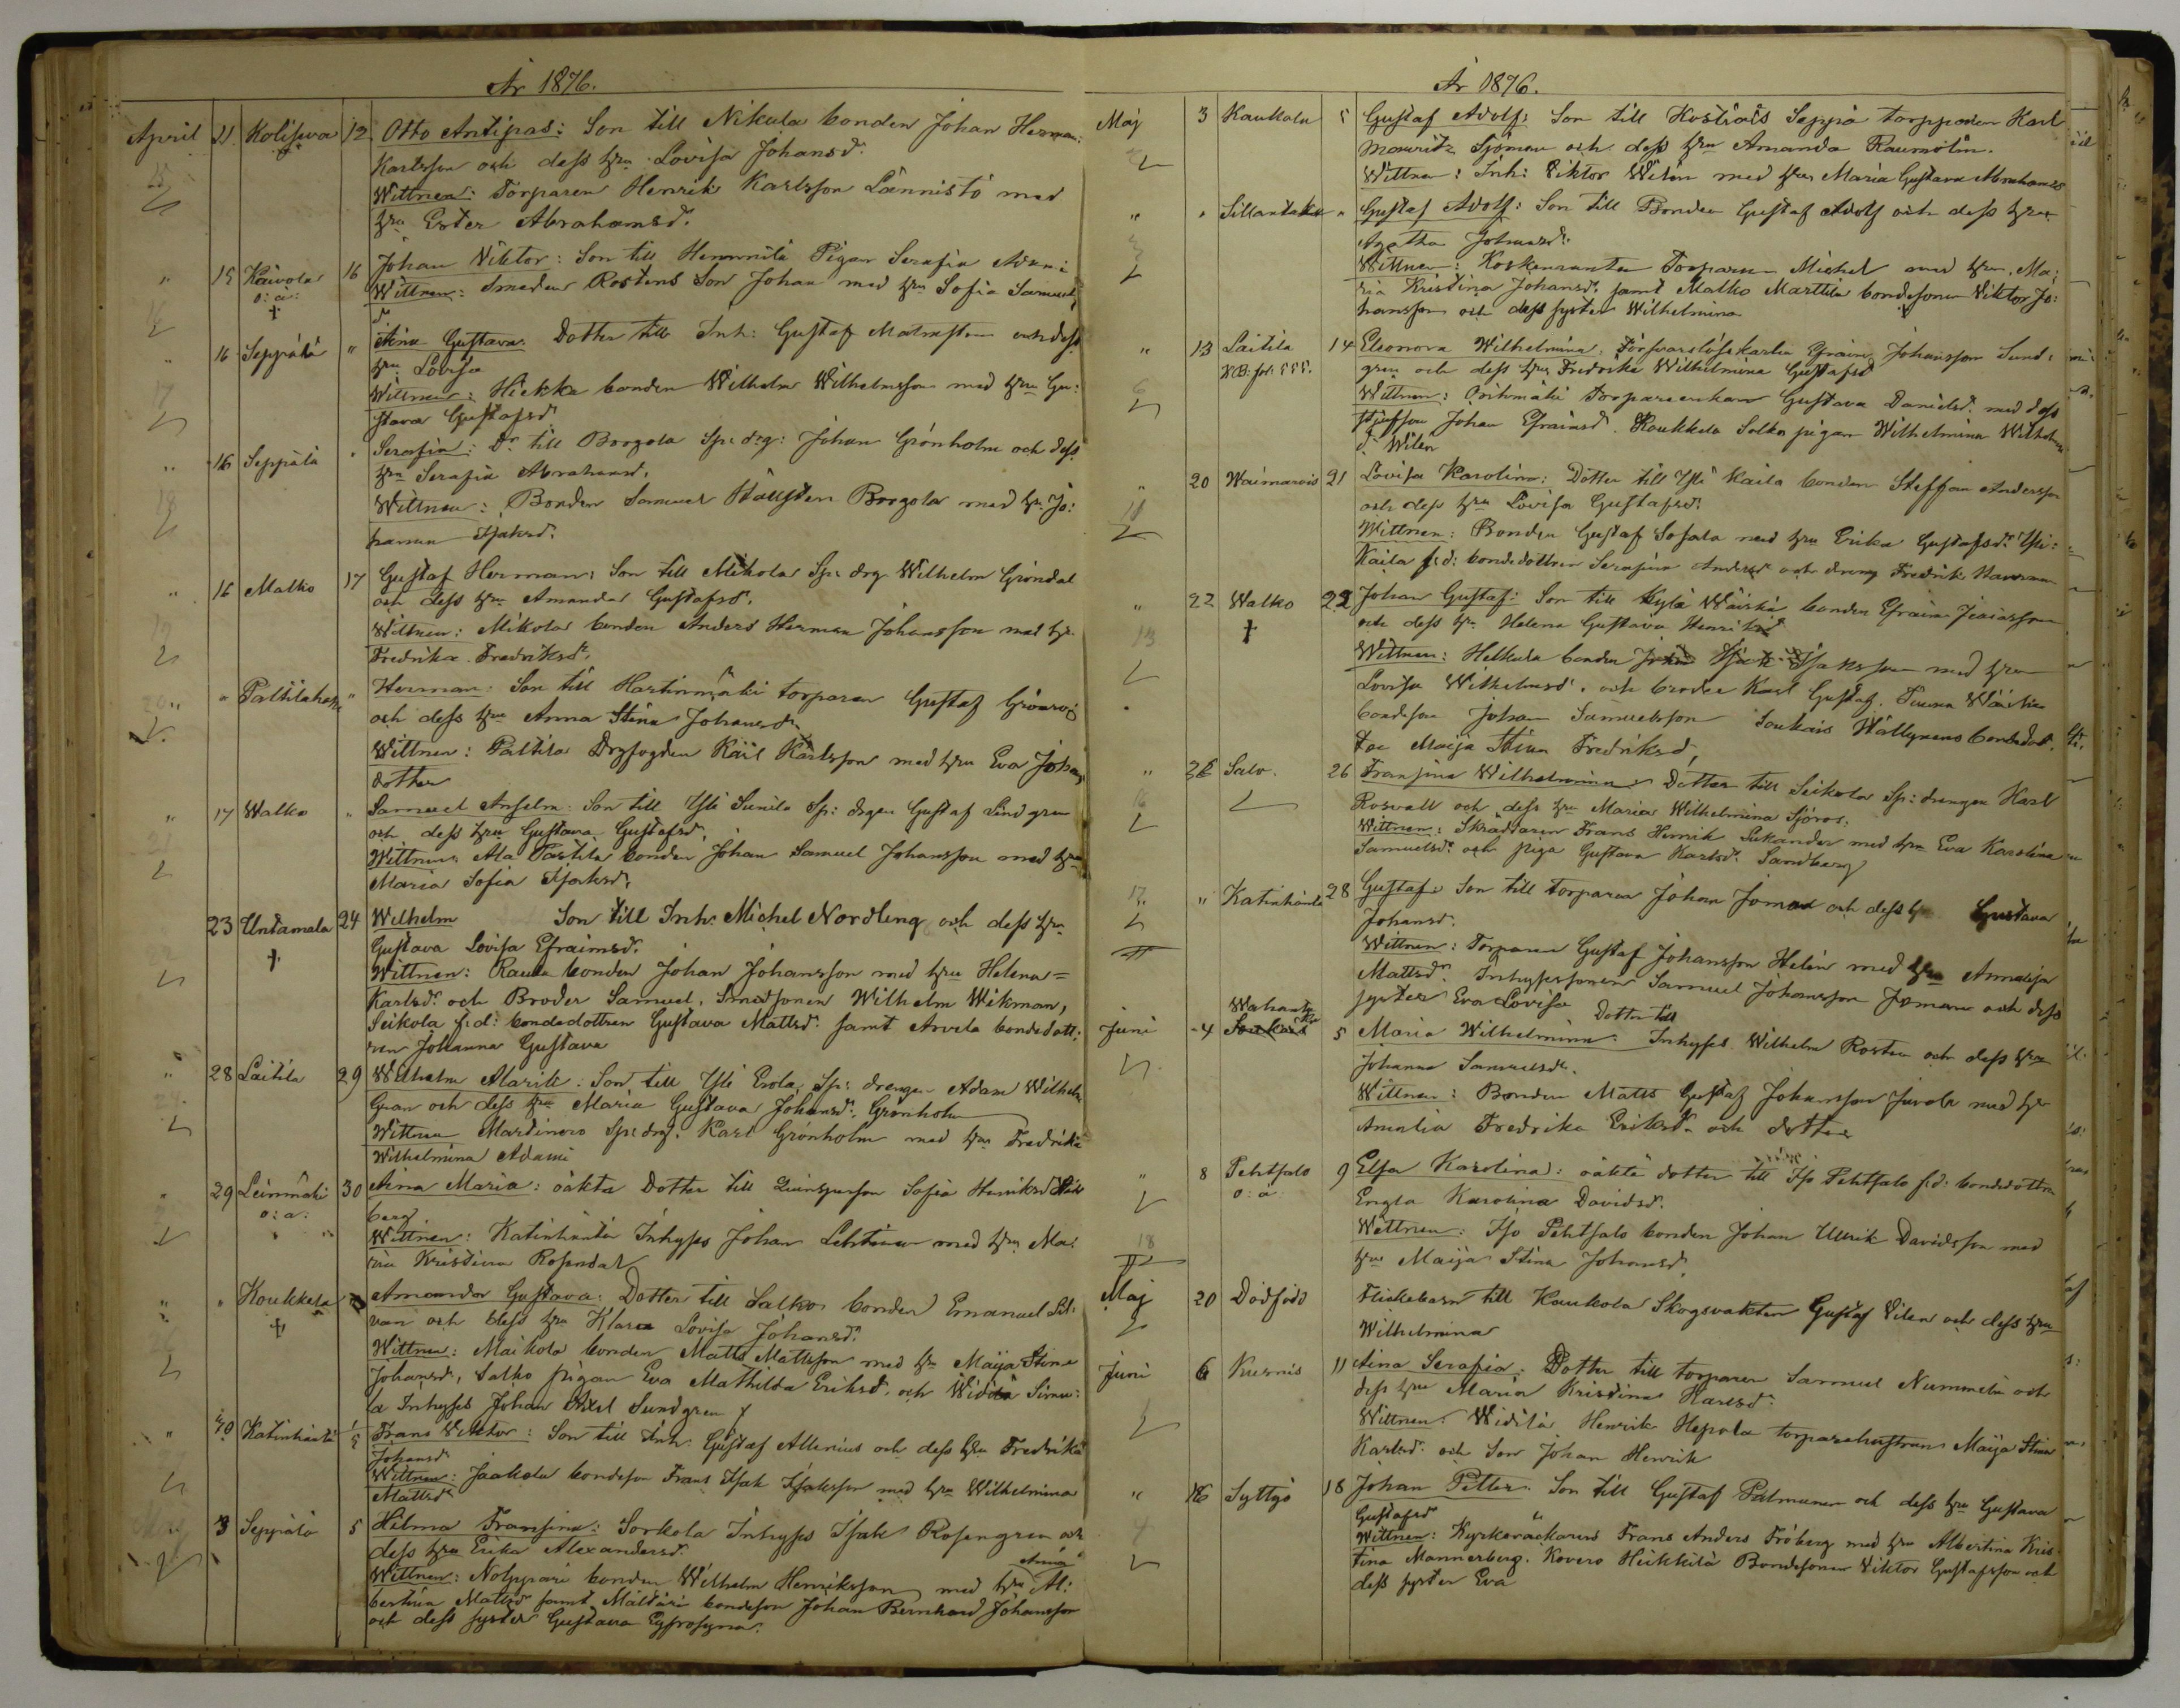 År 1876.
April 11 Kolisewa 12 Otto Antipas: Son till Nikula bonden Johan Herman:
Karlsson och dess hru Lovisa Johansd:
Wittnen: Torparen Henrik Karlsson Lännistö med
hru Ester Abrahamsd.
" 15 Kaivola 16 Johan Viktor: Son till Hemmilä Pigan Serafia Adami
o: ä: † Wittnen: Smeden Rostens Son Johan med hru Sofia Samuels
d:
" 16 Seppälä " Aina Gustava. Dotter till Inh: Gustaf Malmsten och dess
hru Lovisa
Wittnen: Hiekka bonden Wilhelm Wilhelmsson med hru Gu:
stava Gustafsd:
" 16 Seppälä " Serafia: Dr till Borgola Sp: drg: Johan Grönholm och dess
hru Serafia Abrahamsd.
Wittnen: Bonden Samuel Borgola med hr Jo:
hanna Isaksd.
" 16 Malko 17 Gustaf Herman: Son till Mikola Sp: drg Wilhelm Gröndal
och dess hru Amanda Gustafsd.
Wittnen: Mikola bonden Anders Herman Johansson med hr
Fredrika Fredriksd:
" " " Herman: Son till Hartinmäki torparen Gustaf Grönroj
och dess hru Anna Stina Johansd
Wittnen: Paltila Drgfogden Karl Karlsson med hru Eva Johans
dotter
" 17 Walko " Samuel Anselm: Son till Yli Sunila Sp: drgen Gustaf Lindgren
och dess hru Gustava Gustafsd.
Wittnen: Ala Pastila bonden Johan Samuel Johansson med hru
Maria Sofia Isaksd.
23 Untamala 24 Wilhelm Son till Inh: Michel Nordling och dess hru
† Gustava Lovisa Efraimsd.
Wittnen: Rauta bonden Johan Johansson med hru Helena =
Karlsd: och Broder Samuel, Smedsonen Wilhelm Wikman,
Seikola f:d: bondedottren Gustava Mattsd: samt Arvela bondedott:
ren Johanna Gustava
" 28 Laitila 29 Wilhelm Alarik: Son till Yli Erola Sp: drengen Adam Wilhelm
Gran och dess hru Maria Gustava Johansd: Grönholm
Wittnen Martinors Sp: drg. Karl Grönholm med hru Fredrika
Wilhelmina Adami
" 29 Leinmäki 30 Aina Maria: oäkta Dotter till Qvinspersson Sofia Henriksd
o: ä: berg
Wittnen: Katinhänta Inhyses Johan Lehtinen med hru Ma:
ria Kristina Rosendal
" " Koukkela Amanda Gustava: Dotter till Salko bonden Emanuel Sal:
† van och dess hru Klara Lovisa Johansd:
Wittnen: Maikola bonden Matts Mattsson med hr Maija Stina
Johansd, Salko pigan Eva Mathilda Eriksd. och Simu:
la Inhyses Johan Axel Sundgren
" 30 Katinhäntä Frans Viktor: Son till Inh: Gustaf Allenius och dess hru Fredrika
Johansd
Wittnen: Jaakola bondeson Frans Isak Isaksson med hru Wilhelmina
Mattsd
3 Seppälä 5 Hilma Fransina: Sorkola Inhyses Isak Rosengren och
dess hru Erika Alexandersd.
Wittnen: Nohppari bonden Wilhelm Henriksson med hru Anna Al:
bertina Mattsd samt Mältäri bondeson Johan Bernhard Johansson
och dess syster Gustava Eyfrosyna.
År 1876.
Maj 3 Kaukola 5 Gustaf Adolf: Son till Seppä torpparen Karl
Mauritz Sjöman och dess hru Amanda Raumolin.
Wittnen: Inh: Viktor Wilén med hru Maria Gustava Abrahamsd
" " " Gustaf Adolf: Son till Bonden Gustaf Adolf och dess hru
Agatha Johansd.
Wittnen: Koskenranta Torparen Michel med hru Ma:
ria Kristina Johansd. samt Malko Marttila bondesonen Viktor Jo:
hansson och dess syster Wilhelmina
" 13 Laitila 14 Eleonora Wilhelmina: Försvarslöse karlen Efraim Johansson Sund:
KB. fol. 555. gren och dess hru Fredrika Wilhelmina Gustafsd
Wittnen: Torpareenkan Gustava Danielsd. med dess
Johan Efraimsd. Koukkela Salko pigan Wilhelmina Wilhelms
d: Wilen
" 20 Waimarois 21 Lovisa Karolina: Dotter till Yli Kaila bonden Steffan Andersson
och dess hru Lovisa Gustafsd:
Wittnen: Bonden Gustaf Sosala med hru Erika Gustafsd. Yli:
Kaila f:d: bondedottren Serafina Andersd och dreng Fredrik
" 22 Walko 22 Johan Gustaf: Son till Kylä Wäiskä bonden Efraim
† och dess hr Helena Gustava Henriksd
Wittnen: Heikkula bonden Isaksson med hru
Lovisa Wilhelmsd. och broder Karl Gustaf. Wäiskä
bondeson Johan Samuelsson Soukais Hällynens bondedot.
ter Maija Stina Fredriksd.
" Salo. 26 Fransina Wilhelmina: Dotter till Seikola Sp: drengen Karl
Rosvall och dess hru Maria Wilhelmina Sjöros.
Wittnen: Skräddaren Frans Henrik Sukander med hru Eva Karolina
Samuelsd: och piga Gustava Karlsd: Sandberg
" " Katinhänta 28 Gustaf: Son till torparen Johan Joman och dess hr Gustava
Johansd.
Wittnen: Torparen Gustaf Johansson Helin med hru Annaisja
Mattsd: Inhysessonen Samuel Johansson Joman och dess
syster Eva Lovisa
Juni 4 5 Maria Wilhelmina: Dotter till Inhyses Wilhelm Rosten och dess hru
Johanna Samuelsd.
Wittnen: Bonden Matts Gustaf Johansson Juvola med hr
Amalia Fredrika Eriksd. och dotter
" 8 Pehtsalo 9 Elsa Karolina: oäkta dotter till Iso Pehtsalo f:d: bondedottren
o: ä Engla Karolina Davidsd.
Wittnen: Iso Pehtsalo bonden Johan Ulrik Davidsson med
hru Maija Stina Johansd.
Maj 20 Dödfödd Flickebarn till Kaukola Skogsvakten Gustaf Vilen och dess hru
Wilhelmina
Juni 6 Kusnis 11 Aina Serafia: Dotter till torparen Samuel Nummelin och
dess hru Maria Kristina Karlsd:
Wittnen: Widilä Henrik Hepola torparehustrun Maija Stina
Karlsd: och Son Johan Henrik
" 16 Syttyö 18 Johan Petter. Son till Gustaf Palmunen och dess hru Gustava
Gustafsd
Wittnen: Kyrkoväktarens Frans Anders Fröberg med hru Albertina Kris
tina Mannerberg. Kovero Heikkilä Bondesonen Viktor Gustafsson och
dess syster Eva